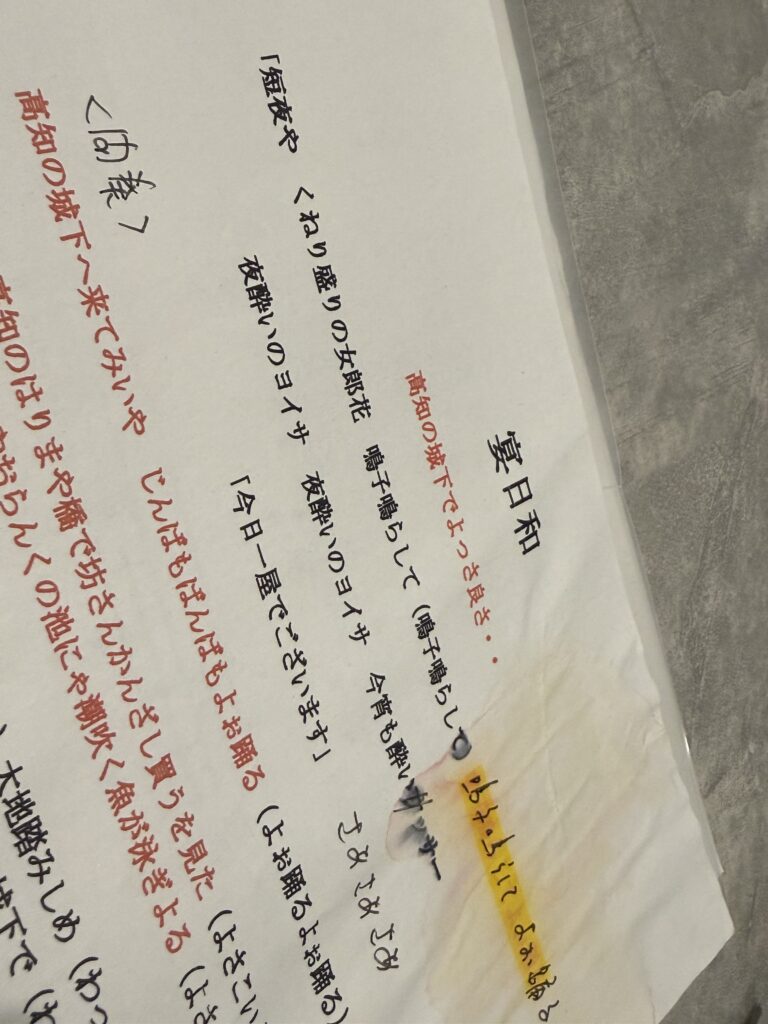 宴日和
高知の城下でよっさ良さ・・
「短夜や　くねり盛りの女郎花　鳴子鳴らして（鳴子鳴らして 鳴子鳴らして よお踊る
夜酔いのヨイサ　夜酔いのヨイサ　今宵も酔いガッサー
「今日一屋でございます」 さあ さあ さあ
高知の城下へ来てみいや　じんばもばんばもよお踊る（よお踊るよお踊る）
高知のはりまや橋で坊さんかんざし買うを見た（よさこい
おらんくの池にゃ潮吹く魚が泳ぎよる（よさ
大地踏みしめ（わっ
城下で（わ